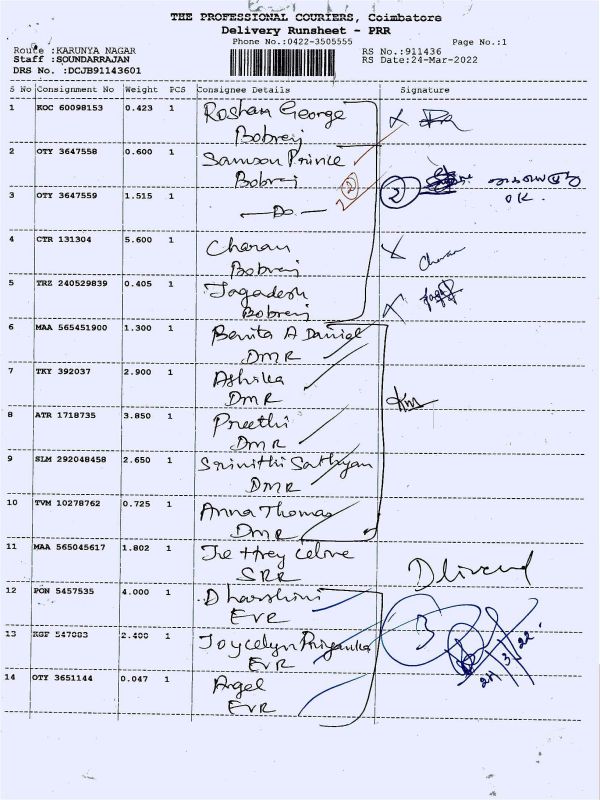 THE PROFESSIONAL COURIERS, Coimbatore
Delivery Runsheet - PRR
Phone No.:0422-3505555 Page No.:1
Route :KARUNYA NAGAR RS No.:911436
Staff :SOUNDARRAJAN RS Date:24-Mar-2022
DRS No. :DCJB91143601
S No Consignment No Weight PCS Consignee Details Signature
1 KOC 60098153 0.423 1 Roshan George
Bobrej
2 OTY 3647558 0.600 1 Samson Prince
Bobrej
3 OTY 3647559 1.515 1 —Do.— 2 2
OK.
4 CTR 131304 5.600 1 Charan Charan
Bobrej
5 TRZ 240529839 0.405 1 Jagadesh
Bobrej
6 MAA 565451900 1.300 1 Benita A Daniel
DMR
7 TKY 392037 2.900 1 Ashika
DMR
8 ATR 1718735 3.850 1 Preethi
DMR
9 SLM 292048458 2.650 1 Srinithi Sathyan
DMR
10 TVM 10278762 0.725 1 Anna Thomas
DMR
11 MAA 565045617 1.802 1
SRR
12 PON 5457535 4.000 1 Dharshini
EVR
13 KGF 547083 2.400 1 Joycelyn Priyanka 3
EVR 24 3 22
14 OTY 3651144 0.047 1 Angel
EVR